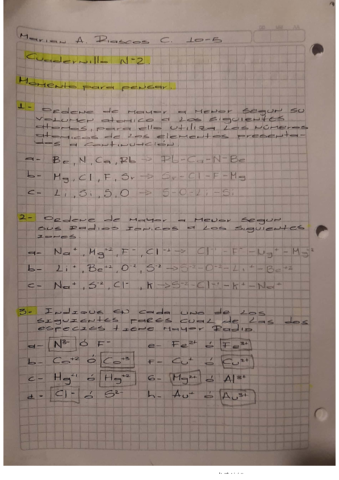 Marian A. Dioscos C. 10-5
Cuadernillo N°2
Momento para pensar
1- Ordene de Mayor a Menor segun su
volumen atomico a los siguientes
atomos, para ello utiliza los números
atomicos de los elementos presenta-
dos a continuación
a- Be, N, Ca, Rb → Rb-Ca-N-Be
b- Mg, Cl, F, Si →
c- Li, Si, S, O →
2- Ordene de Mayor a Menor segun
sus Radios Ionicos a los siguientes
Iones
a- Na⁺, Mg⁺², F⁻, Cl⁻
b- Li⁺, Be⁺², O⁻², S⁻²
c- Na⁺, S⁻², Cl⁻, K
3- Indique en cada uno de los
siguientes pares cual de las dos
especies tiene Mayor Radio
a- N³⁻ ó F⁻ e- Fe²⁺ ó Fe³⁺
b- Co⁺² ó Co⁺³ F- Cu⁺ ó Cu²⁺
c- Hg⁺¹ ó Hg⁺² G- Mg²⁺ ó Al³⁺
d- Cl⁻ ó S²⁻ h- Au⁺ ó Au³⁺